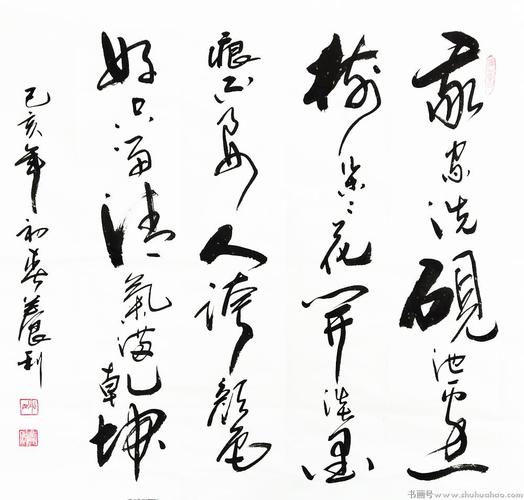 我家洗硯池邊
樹朵々花開淡墨
痕不要人誇顏色
好只留清氣滿乾坤
己亥年初春
书画号 www.shuhuahao.com